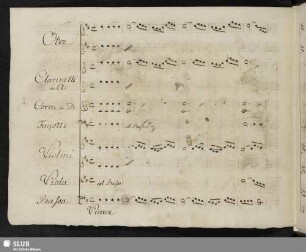 Oboe
Clarinetti
in A
Corni in D
Fagotti
Violini
Viola
col Basso
Basso
SLUB
Wir führen Wissen.